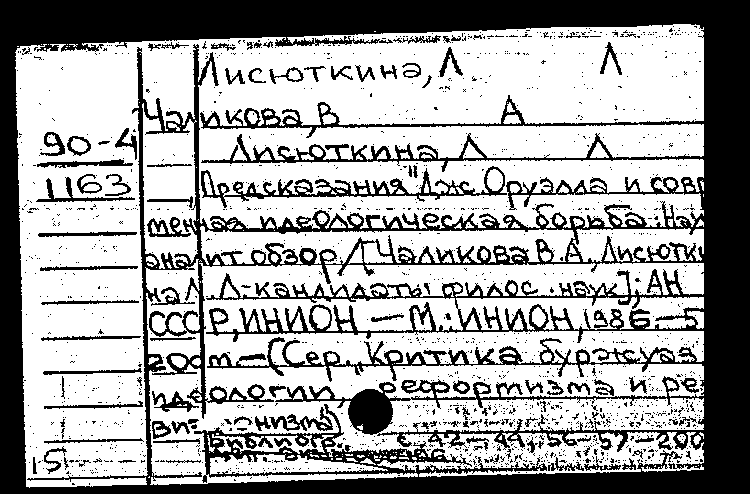 Лисюткина, Л Л
Чаликова, В А
90-4
Лисюткина, Л Л
1163
Предсказания "Дж. Оруэлла и совр
менная идеологическая борьба: Нау
аналит обзор. /[Чаликова В.А., Лисютки
на Л. Л.-кандидаты филос. наук]; АН
СССР, ИНИОН, — М.: ИНИОН, 1986. — 5
200т. — (Сер. „Критика буржуаз
идеологии, рефортизма и ре
визионизма")
Библиогр.: с 42-44, 56-57 — 200
15